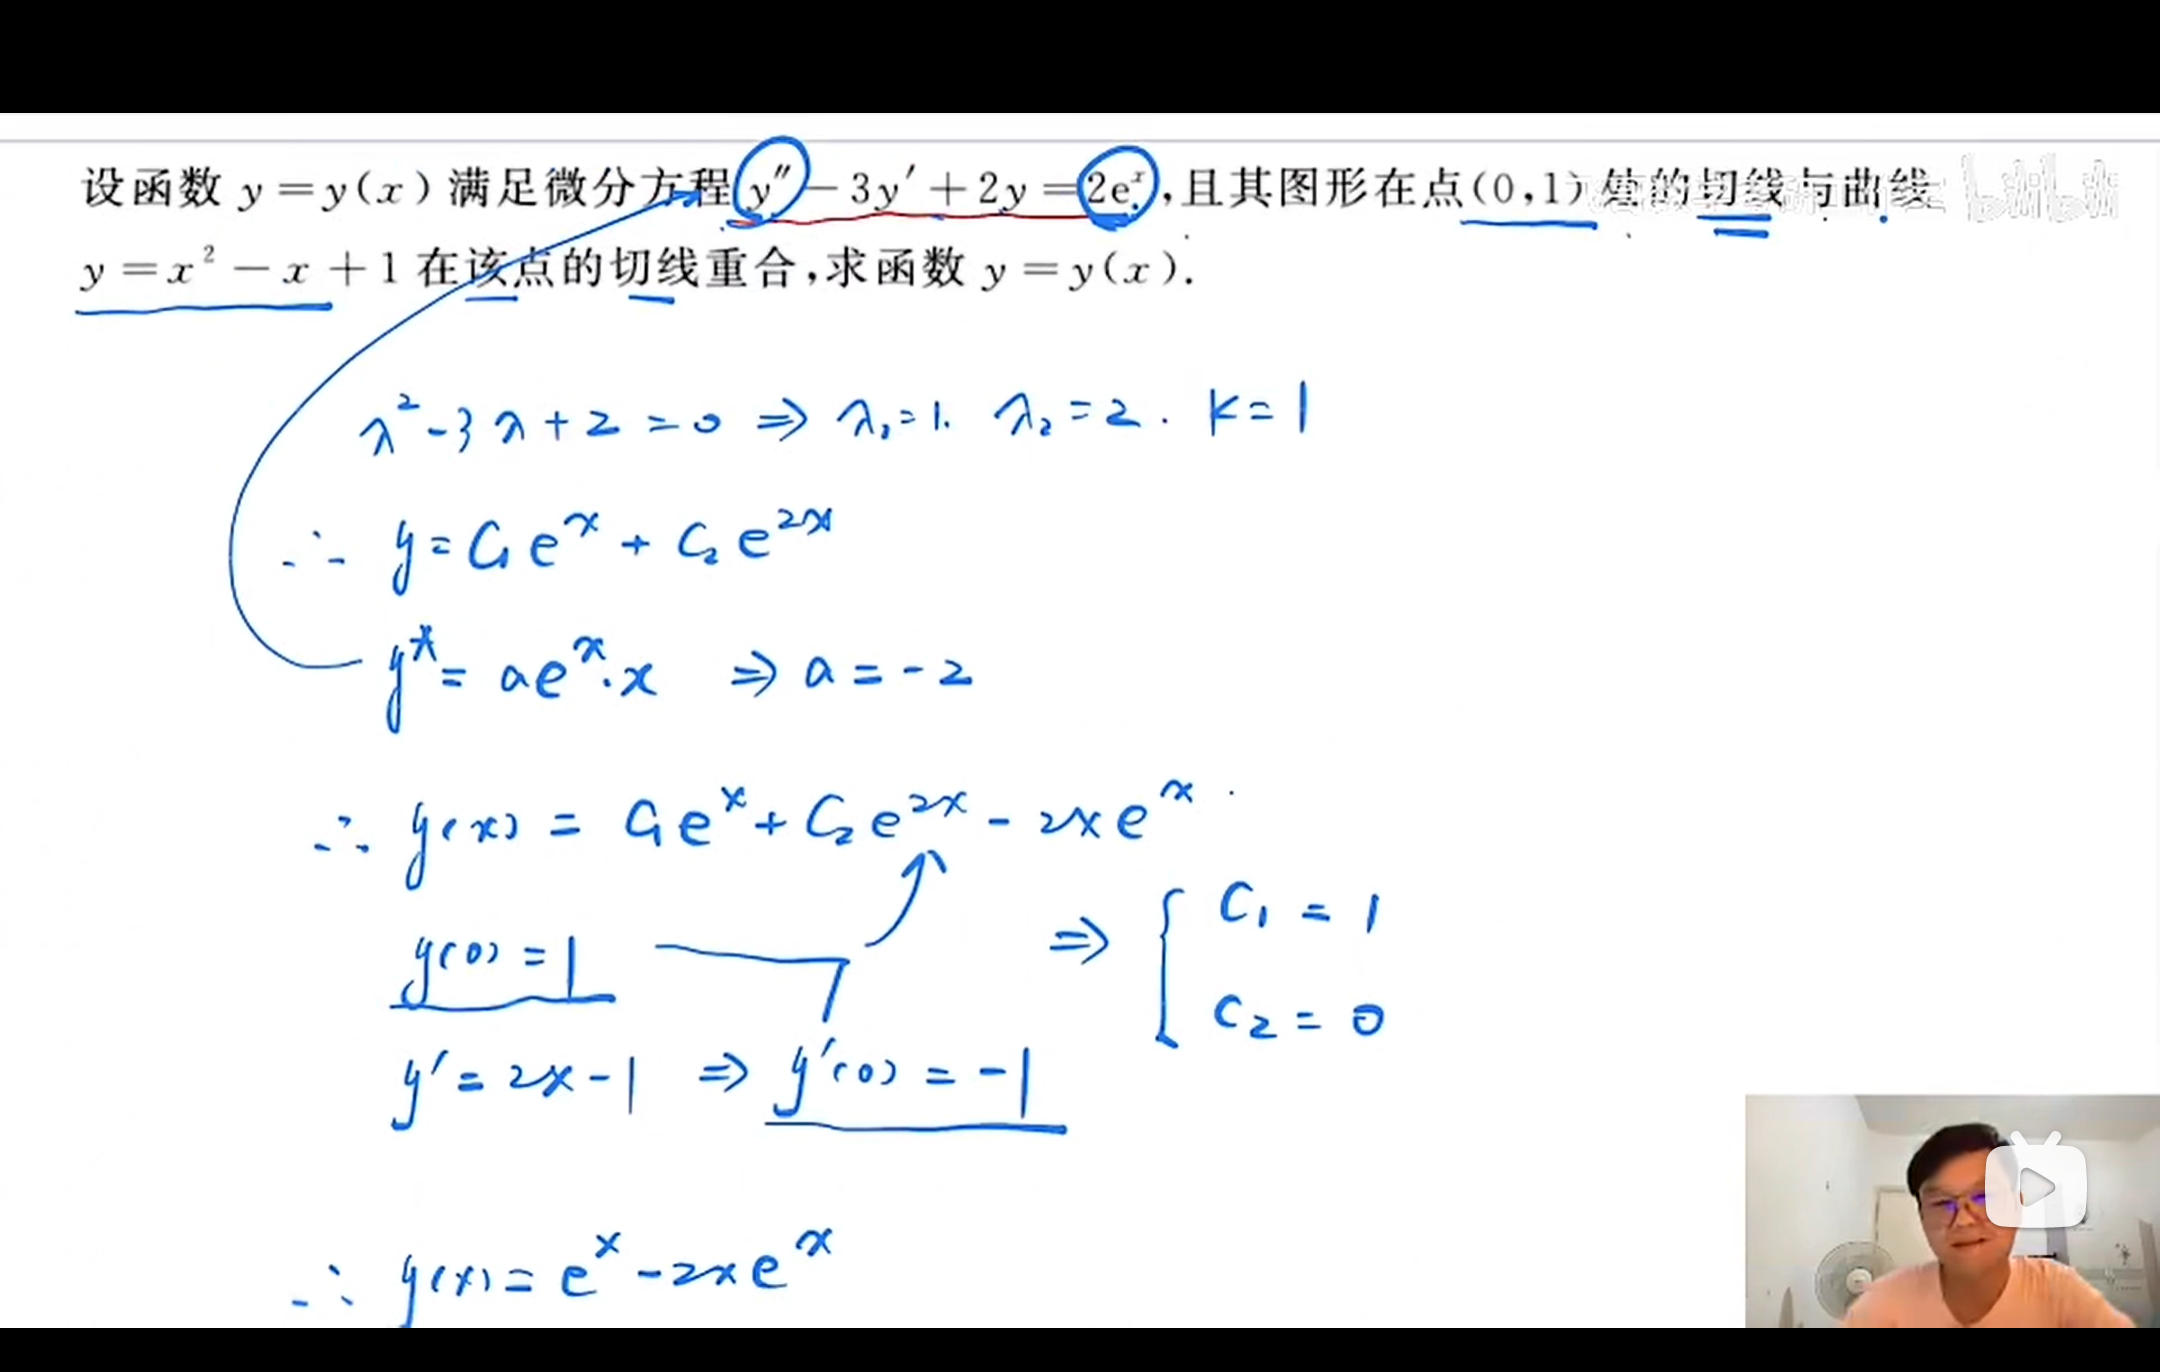 设函数 y=y(x)满足微分方程 y″-3y′+2y=2eˣ,且其图形在点(0,1)处的切线与曲线
y=x²-x+1在该点的切线重合,求函数 y=y(x).
λ²-3λ+2=0 ⇒ λ₁=1. λ₂=2. K=1
∴ y=C₁eˣ+C₂e²ˣ
y*=aeˣ·x ⇒ a=-2
∴ y(x)=C₁eˣ+C₂e²ˣ-2xeˣ.
y(0)=1 ⇒ { C₁=1
C₂=0
y′=2x-1 ⇒ y′(0)=-1
∴ y(x)=eˣ-2xeˣ
bilibili